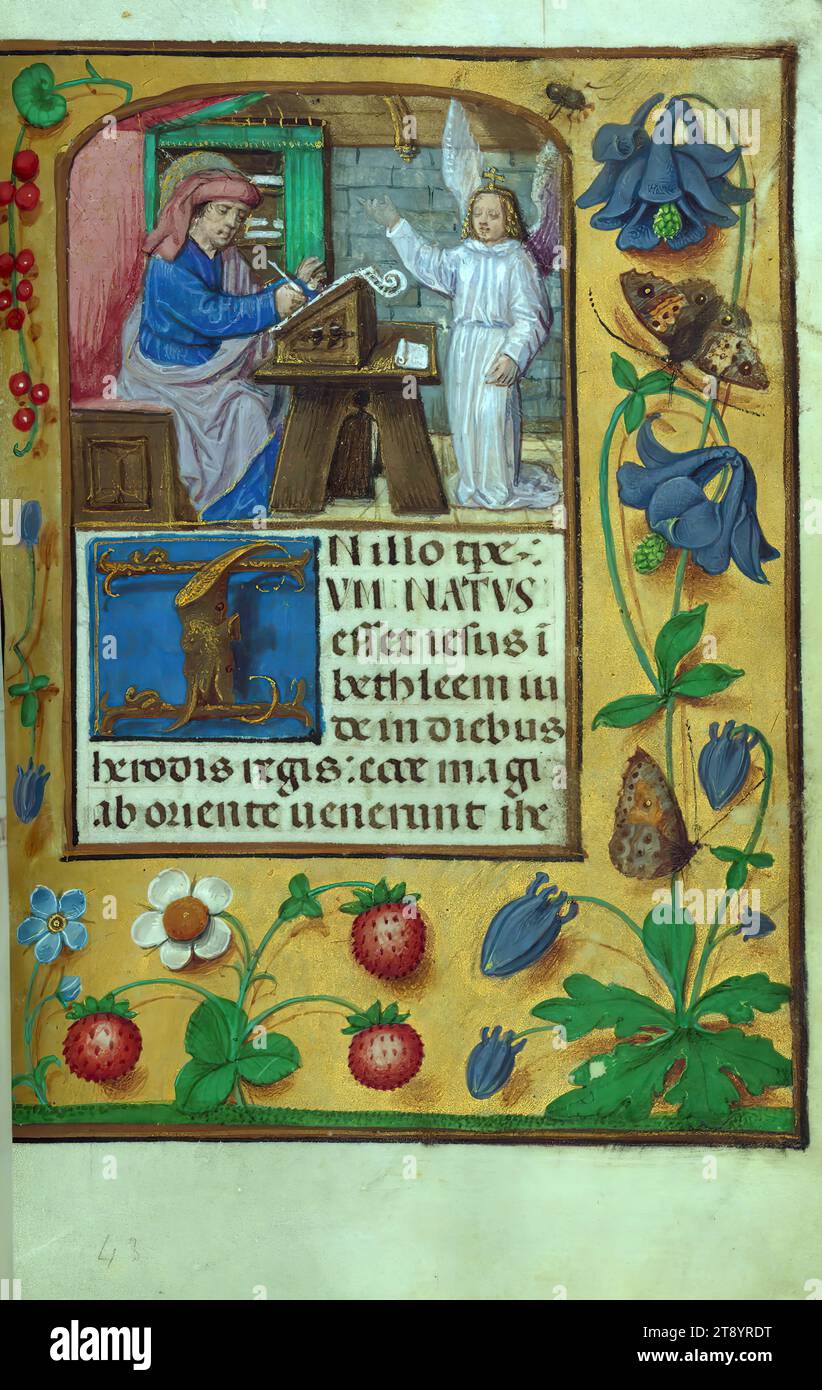 IN illo tpe:
VM NATVS
esset iesus i
bethleem iu
de in diebus
herodis regis: ecce magi
ab oriente uenerunt ihe
43
alamy
Image ID: 2T8YRDT
www.alamy.com